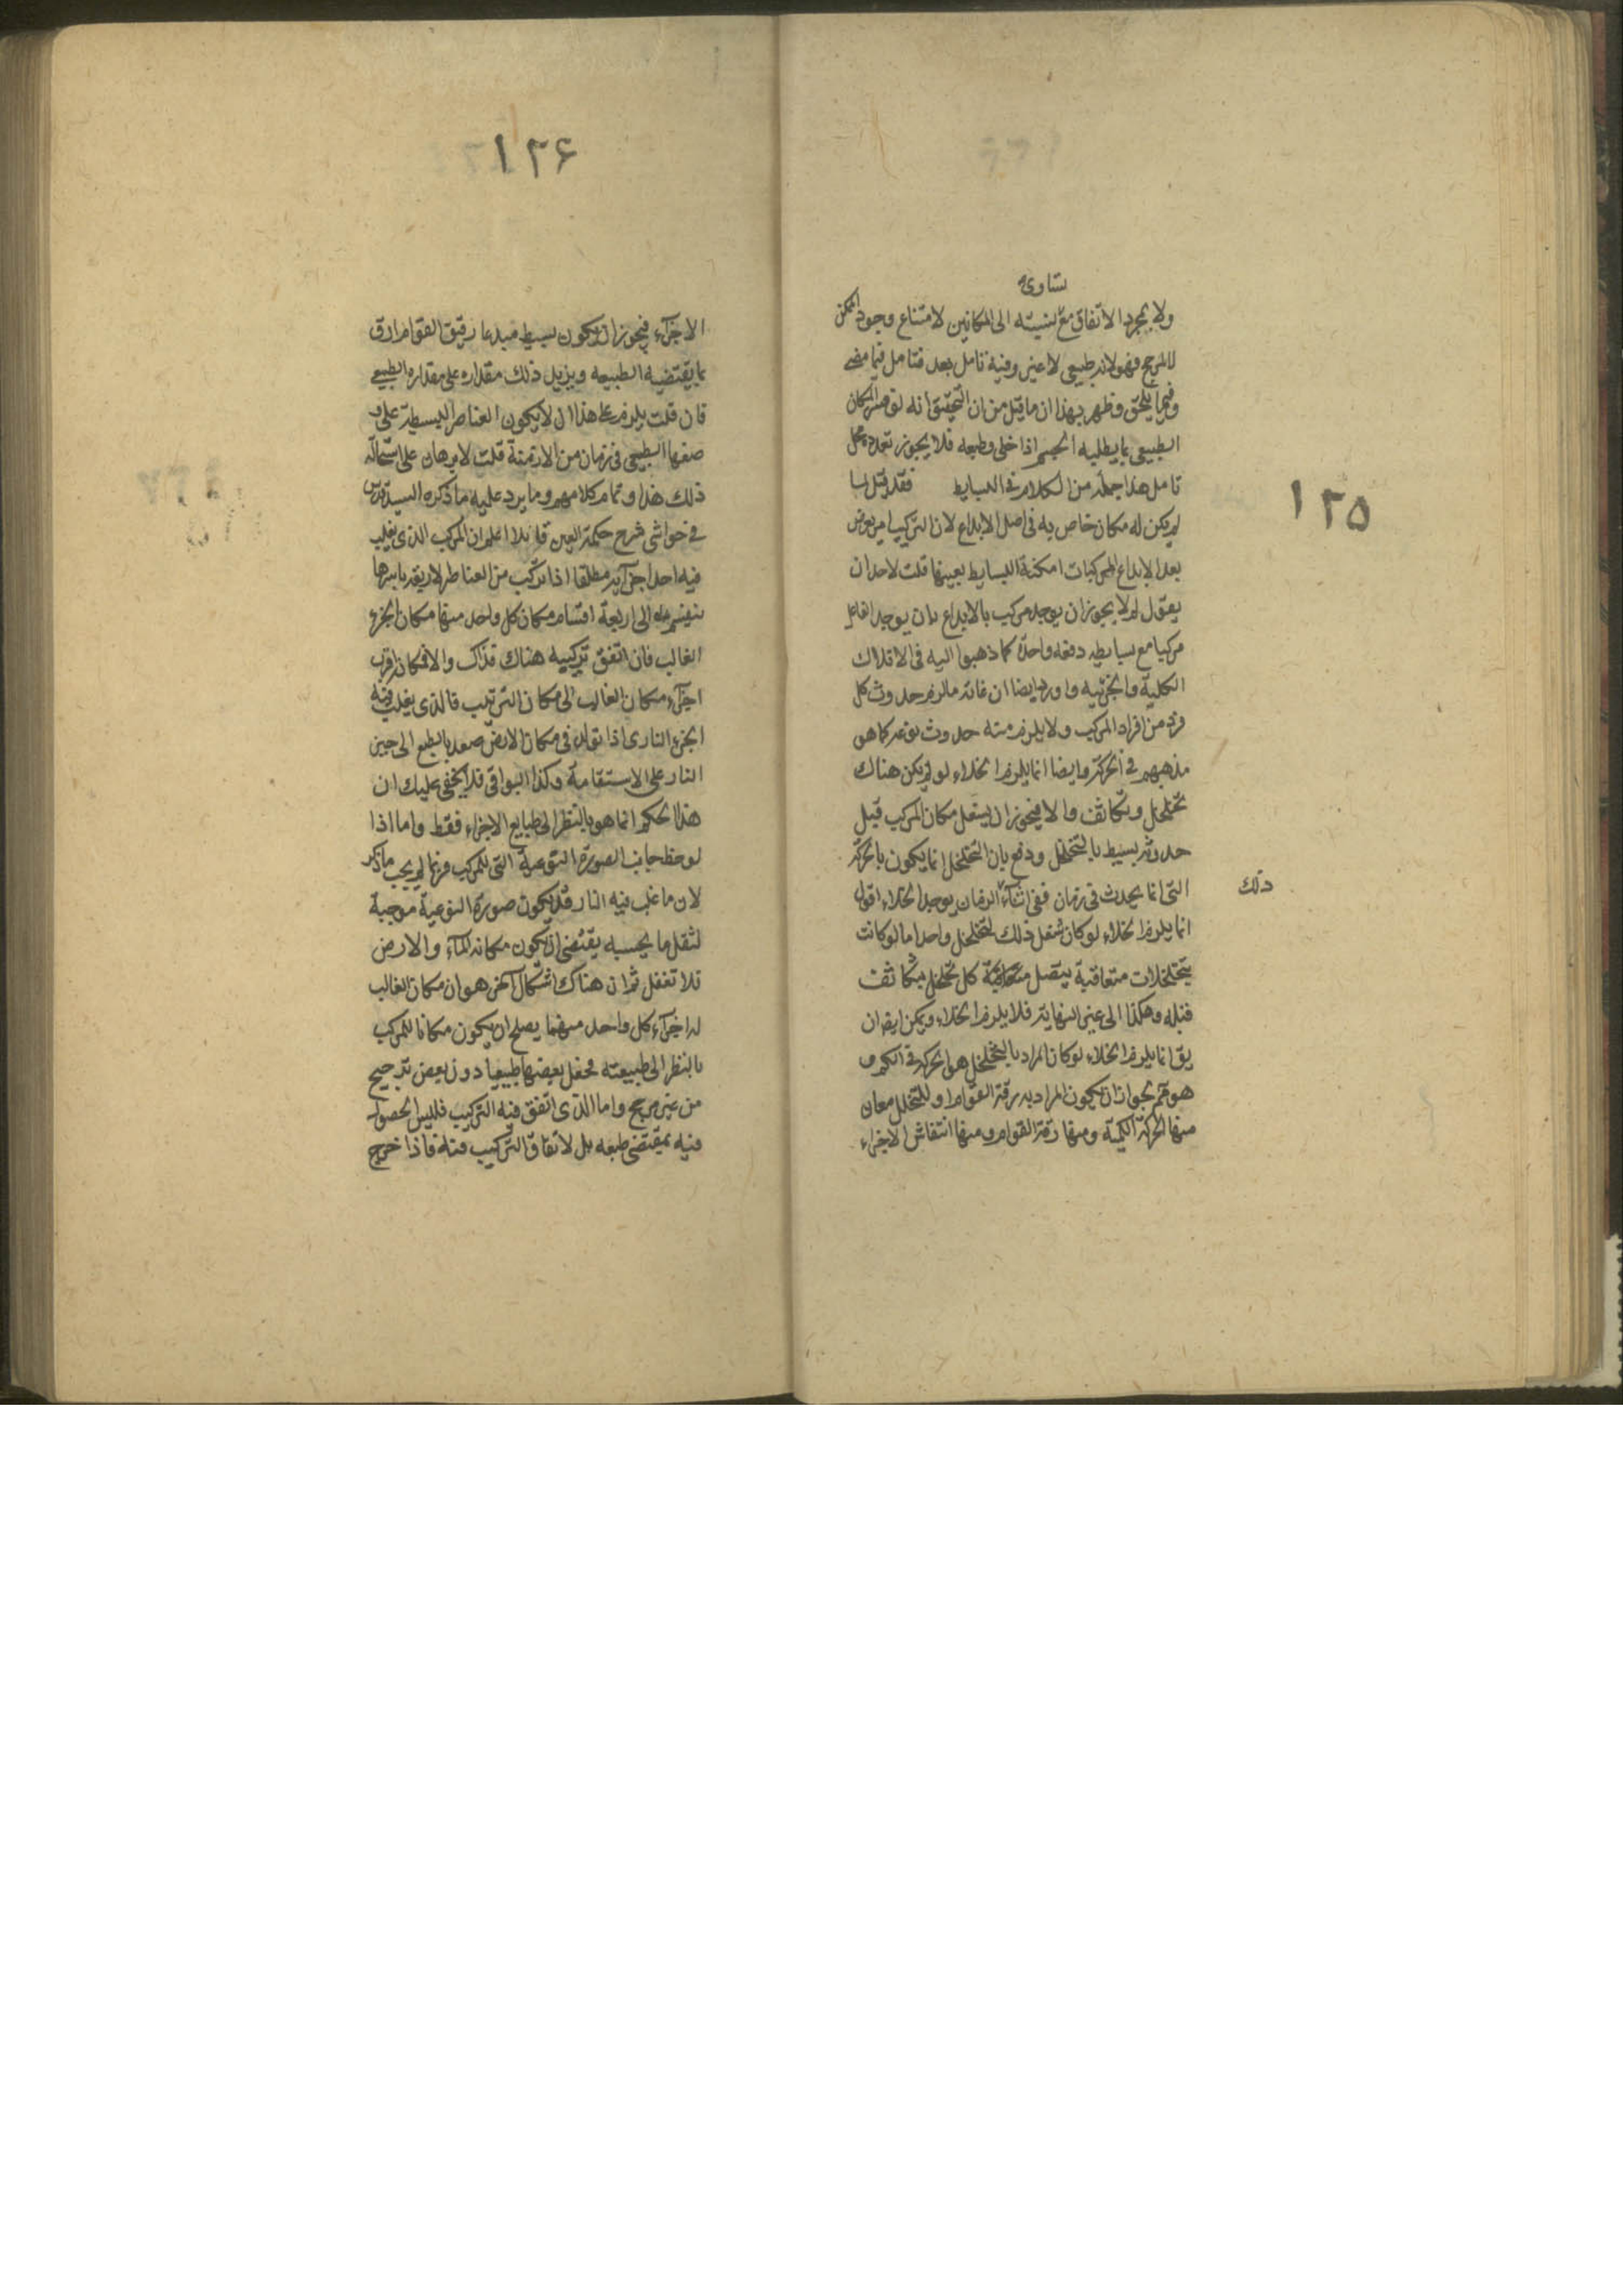 ١٢٥
تساوى
ولا بمجرد الاتفاق مع نسبته الى المكانين لامتناع وجود الممكن
لا لمرجح فهو لانه طبيعى لا غير وفيه تامل بعد فتامل فيما مضى
وفيما يلحق وظهر بهذا ان ما قيل من ان التحقيق انه لو فسر المكان
الطبيعى بما يطلبه الجسم اذا خلى وطبعه فلا يجوز تعدده محل
تامل هذا جملة من الكلام فى البسايط فقد قيل لما
لم يكن له مكان خاص به فى اصل الابداع لان التركيب امر يعرض
بعد الابداع للمركبات امكنة البسايط بعينها قلت لاحد ان
يقول لم لا يجوز ان يوجد مركب بالابداع بان يوجد الفاعل
مركبا مع بسايطه دفعه واحدة كما ذهبوا اليه فى الافلاك
الكلية والجزئيه واورد ايضا ان غاية ما لزم حدوث كل
فرد من افراد المركب ولا يلزم منه حدوث نوعه كما هو
مذهبهم فى الحركة وايضا انما يلزم الخلاء لو لم يكن هناك
تخلخل وتكاثف والا فيجوز ان يشغل مكان المركب قبل
حدوثه بسيط بالتخلخل ودفع بان التخلخل انما يكون بالحركة
التى انما يحدث فى زمان ففى اثناء الزمان يوجد الخلاء اقول
ذلك
انما يلزم الخلاء لو كان شغل ذلك لتخلخل واحد اما لو كانت
تخلخلات متعاقبة يتصل كل تخلخل بتكاثف
قبله وهكذا الى غير النهاية فلا يلزم الخلاء ويمكن ايضا ان
يق انما يلزم الخلاء لو كان المراد بالتخلخل هو الحركة فى الكم و
هو ثم لجواز ان يكون المراد به رقة القوام او للتخلخل معان
منها الحركة الكمية ومنها رقة القوام ومنها انتفاش الاجزاء
١٢۶
الاجزاء فيجوز ان يكون بسيط مبدعا رقيق القوام ارق
مما يقتضيه الطبيعه ويزيل ذلك مقداره على مقداره الطبيعى
فان قلت يلزم على هذا ان لا يكون العناصر البسيطة على
صفتها الطبيعى فى زمان من الازمنة قلت لا برهان على استحالة
ذلك هذا وتمام كلامهم وما يرد عليه ما ذكره السيد قدس
فى حواشى شرح حكمة العين قائلا اعلم ان المركب الذى يغلب
فيه احد اجزائه مطلقا اذا تركب من العناصر الاربعة باسرها
ينقسم الى اربعة اقسام مكان كل واحد منها مكان الجزء
الغالب فان اتفق تركيبه هناك فذاك والا فكان اقرب
اجزاء مكان الغالب الى مكان التركيب فالذى يغلب فيه
الجزء النارى اذا تولد فى مكان الارض صعد بالطبع الى حيز
النار على الاستقامة وكذا البواقى فلا يخفى عليك ان
هذا الحكم انما هو بالنظر الى طبايع الاجزاء فقط واما اذا
لوحظ جانب الصورة النوعية التى للمركب فربما لم يجب ما ذكر
لان ما غلب فيه النار قد يكون صورة النوعية موجبة
لثقل ما يحسبه يقتضى ان يكون مكانه الماء والارض
فلا تغفل ثم ان هناك اشكالا آخر هو ان مكان الغالب
له اجزاء كل واحد منهما يصلح ان يكون مكانا للمركب
بالنظر الى طبيعته فجعل بعضها طبيعيا دون بعض ترجيح
من غير مرجح واما الذى اتفق فيه التركيب فليس الحصول
فيه بمقتضى طبعه بل لاتفاق التركيب فيه فاذا خرج